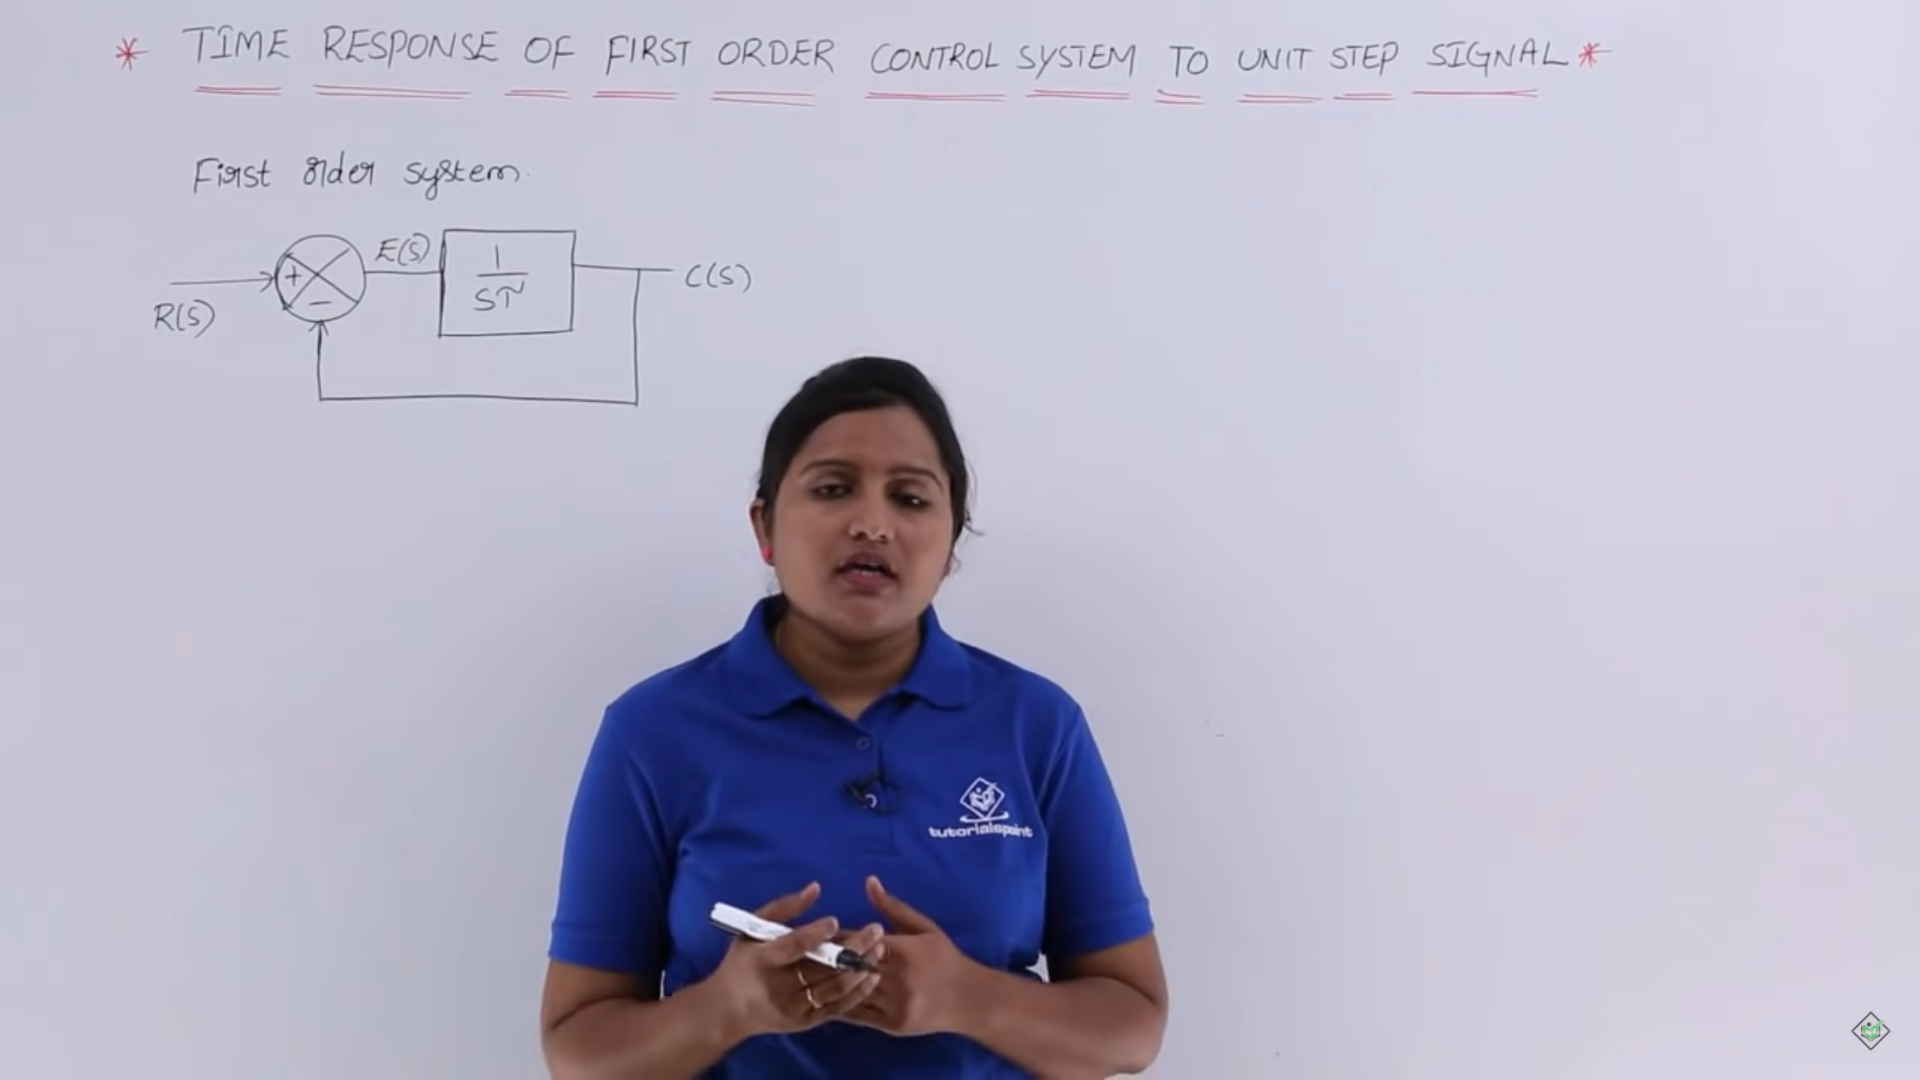 * TIME RESPONSE OF FIRST ORDER CONTROL SYSTEM TO UNIT STEP SIGNAL *
First order system.
R(S)
+
−
E(S)
1
Sτ
C(S)
tutorialspoint